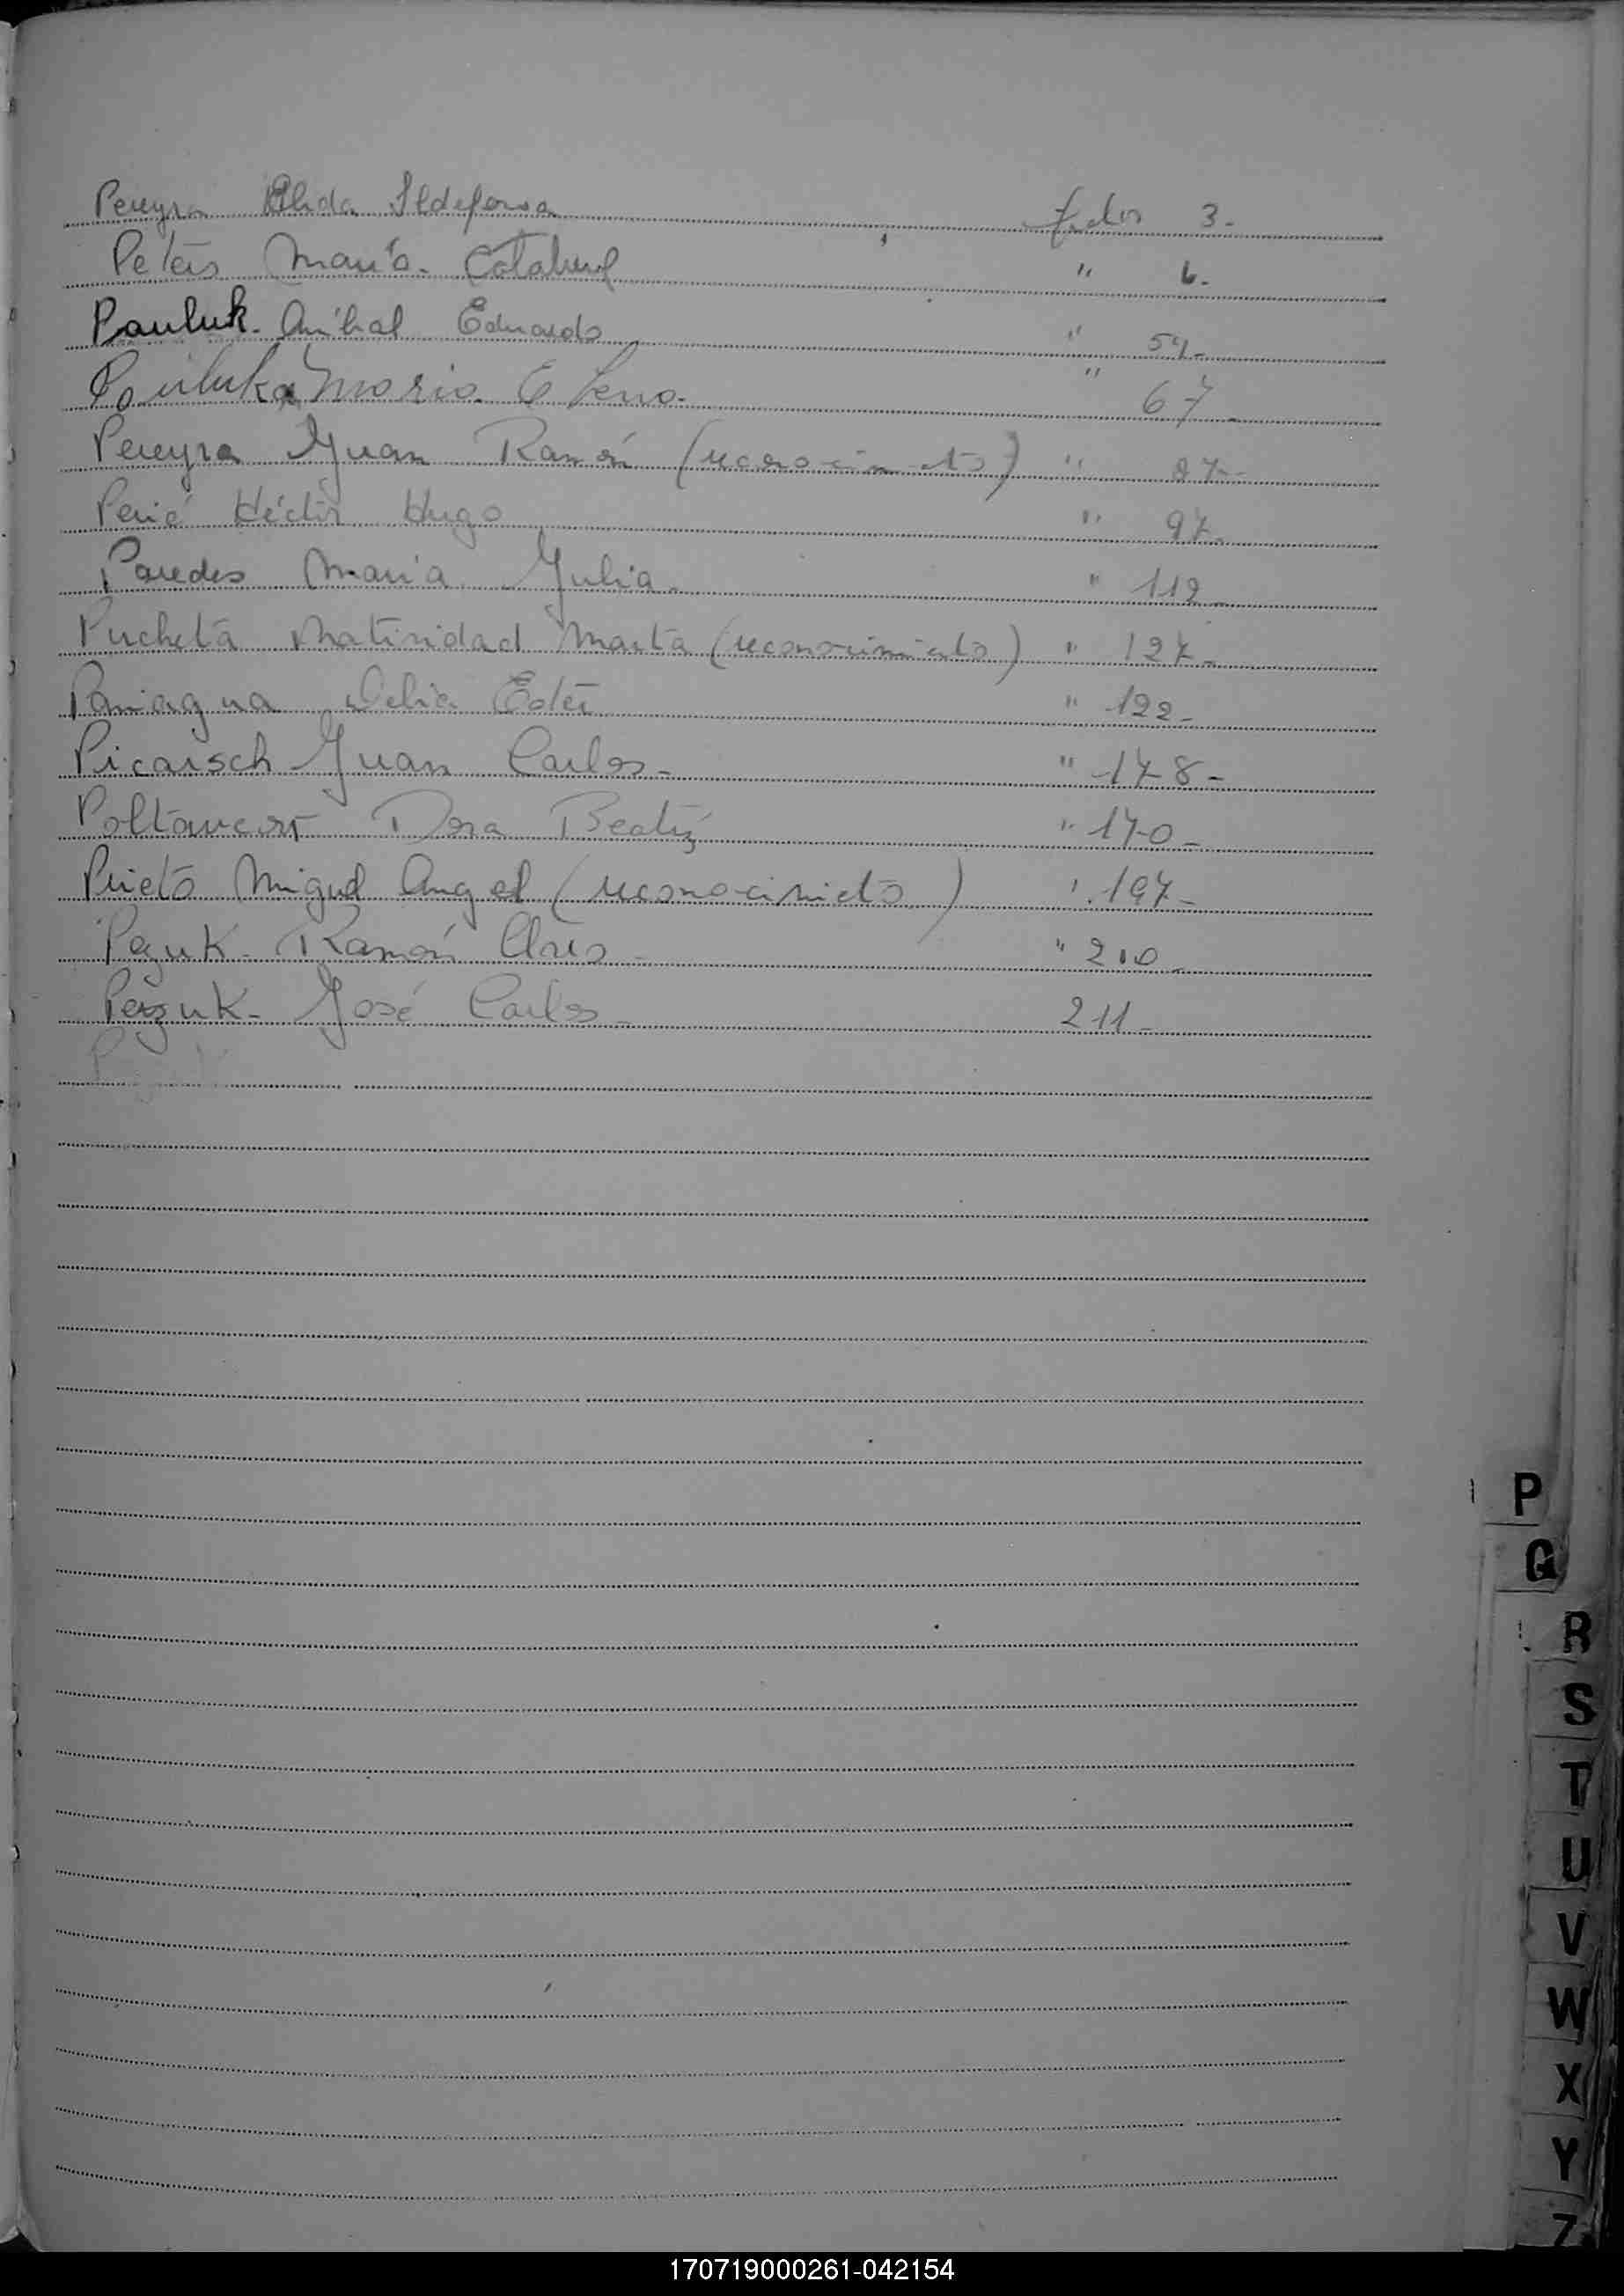 Pereyra Elida Ildefonsa folio 3.-
Peters María Catalina " 6.-
Pauluk. Aníbal Eduardo " 59.-
Pauluka Maria Elena. " 67.-
Pereyra Juan Ramón (reconocimiento) " 87.-
Perié Héctor Hugo " 97.-
Paredes María Julia. " 112.-
Pucheta Natividad Marta (reconocimiento) " 127.-
Paniagua Delia Ester " 122.-
Picarsch Juan Carlos.- " 178.-
Poltavcosr Dora Beatriz " 170.-
Prieto Miguel Angel (reconocimiento) " 197.-
Pezuk. Ramón 210.-
Pezuk. José Carlos.- 211.-
P
Q
R
S
T
U
V
W
X
Y
Z
170719000261-042154